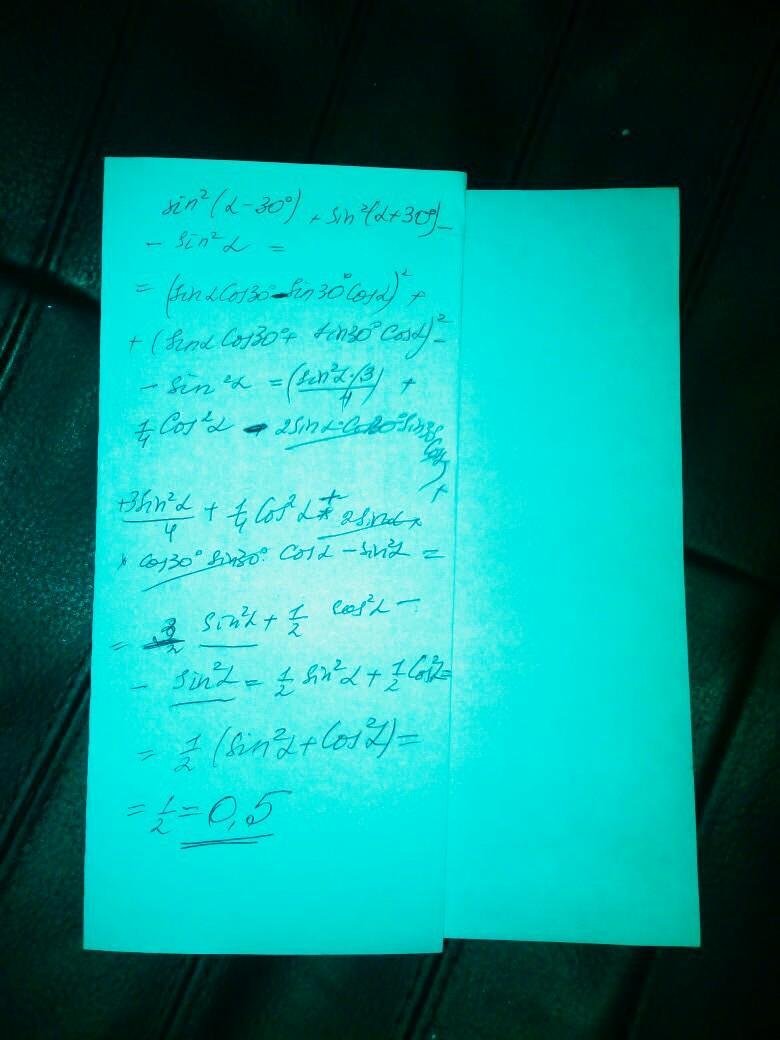 sin²(α-30°) + sin²(α+30°) -
- sin²α =
= (sinα cos30° - sin30° cosα)² +
+ (sinα cos30° + sin30° cosα)² -
- sin²α = (sin²α·3/4) +
1/4 cos²α - 2sinα·cos30° sin30°
cosα) +
+3sin²α/4 + 1/4 cos²α + 2sinα ×
× cos30° sin30° · cosα - sin²α =
= 3/2 sin²α + 1/2 cos²α -
- sin²α = 1/2 sin²α + 1/2 cos²α =
= 1/2 (sin²α + cos²α) =
= 1/2 = 0,5